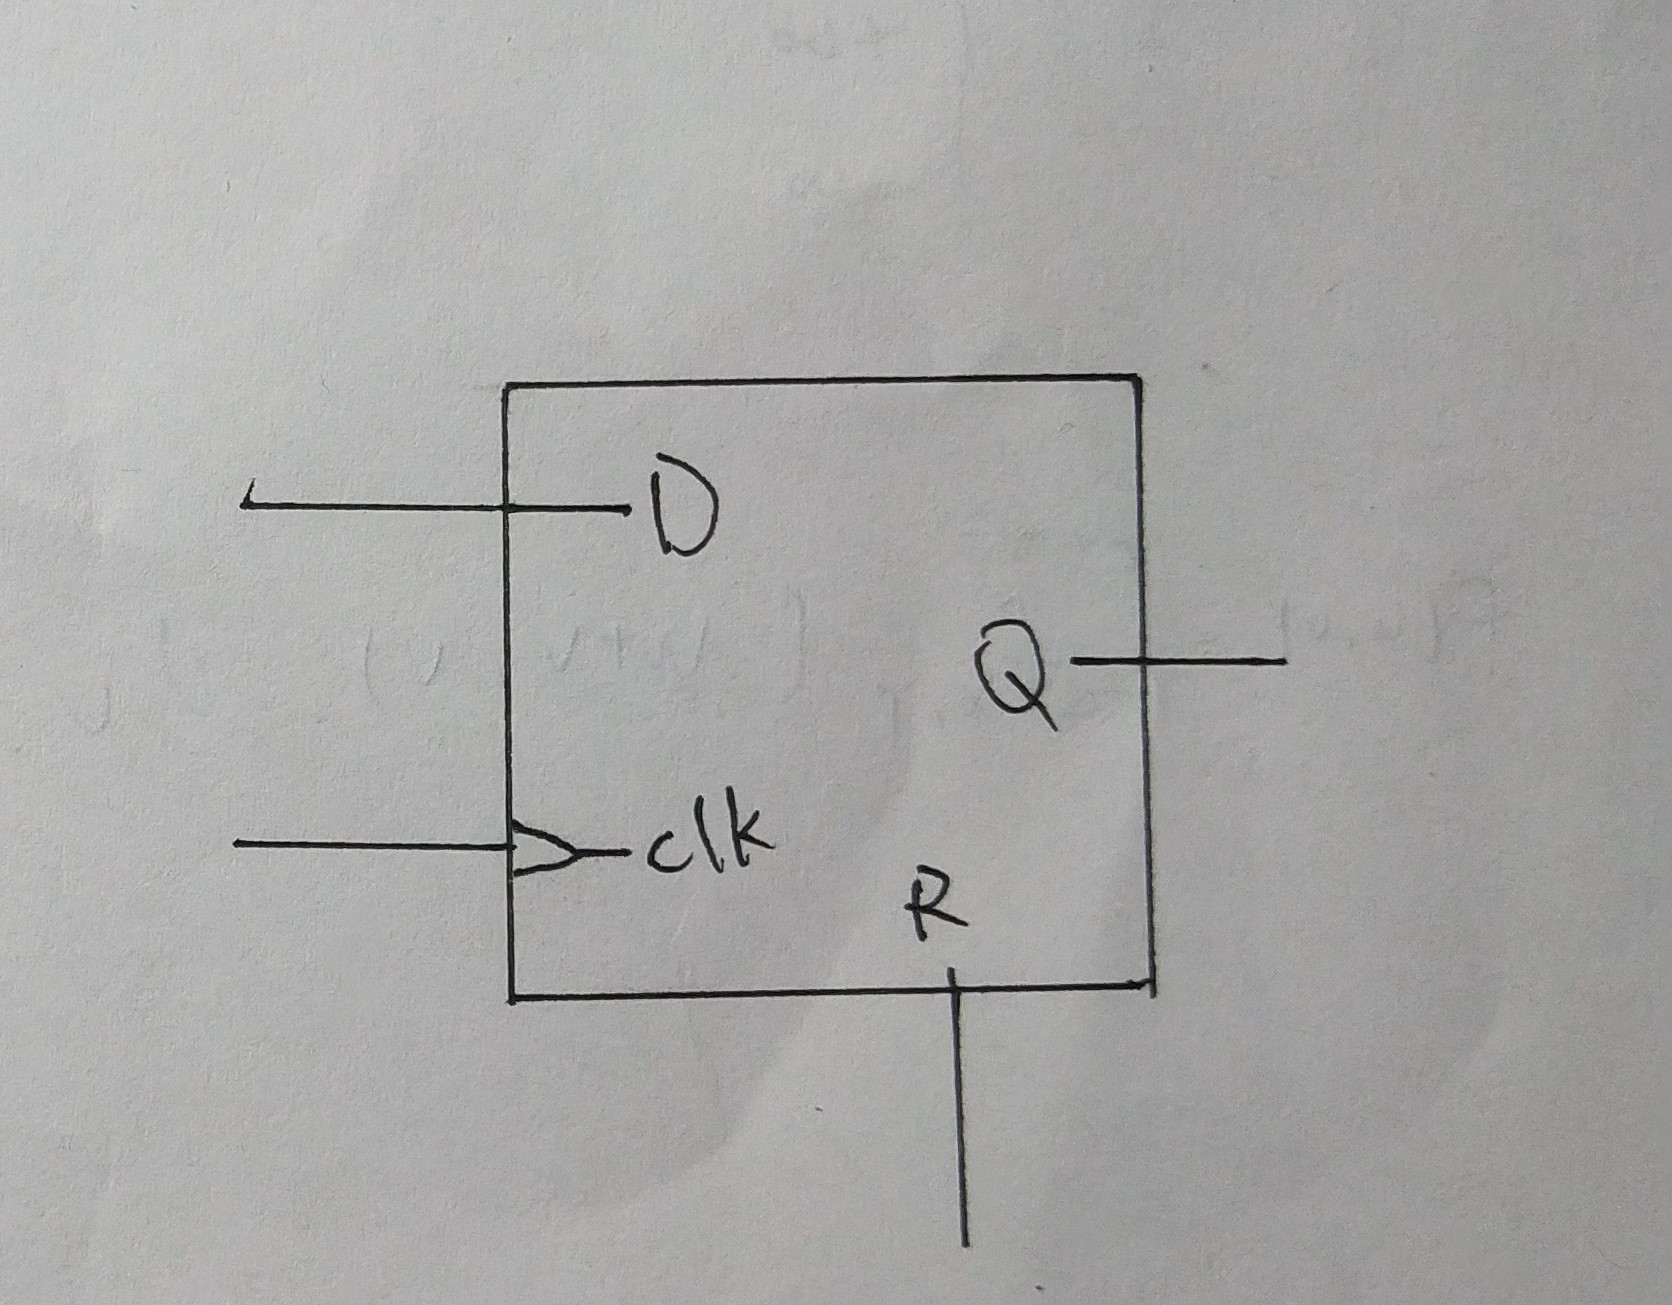 D
Q
clk
R